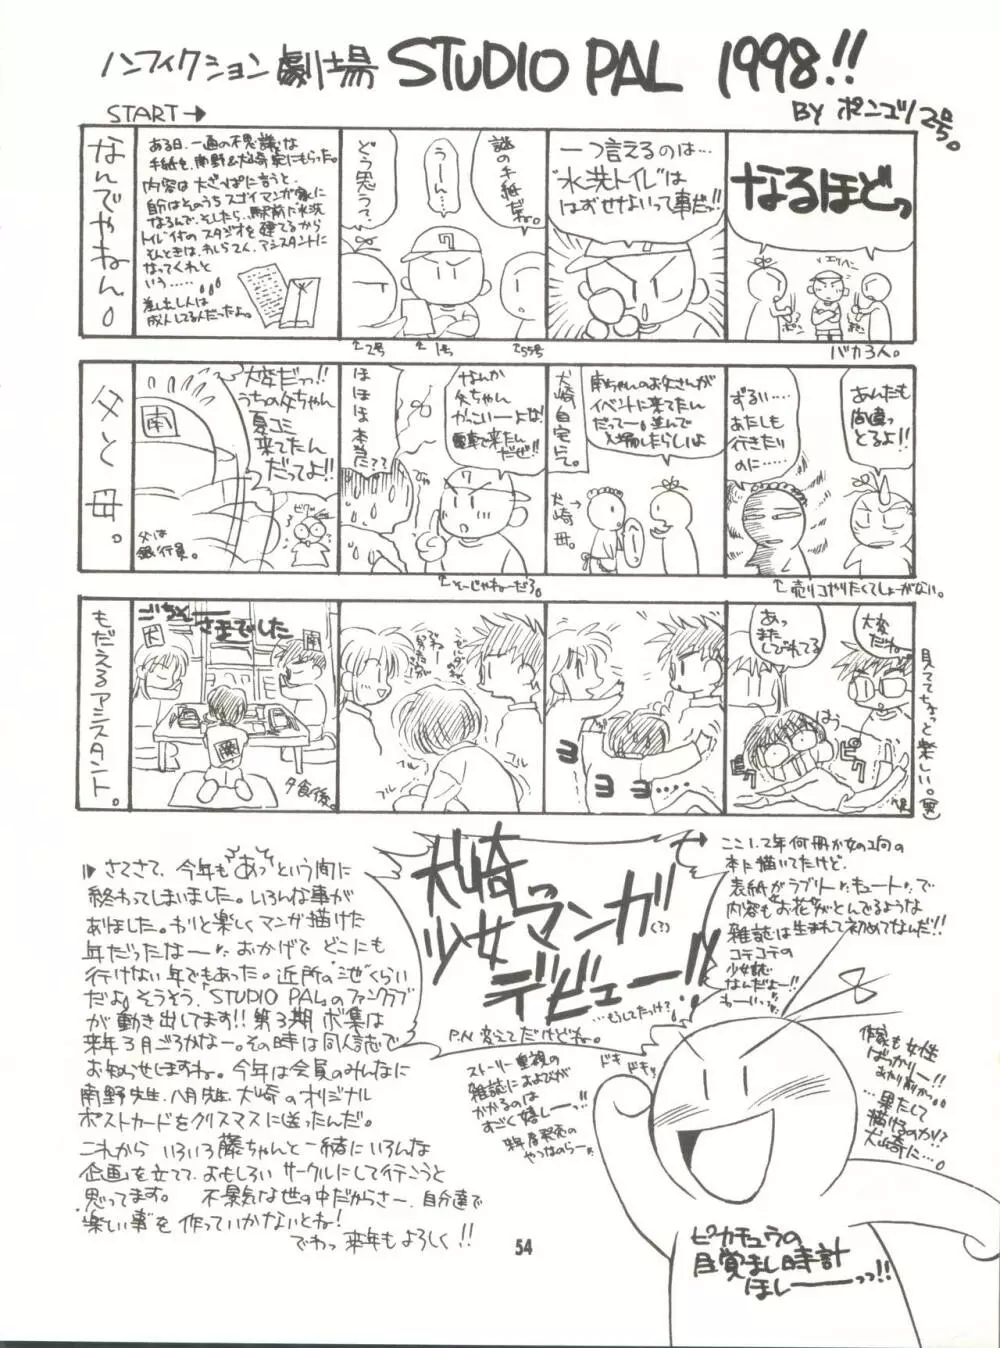 ノンフィクション劇場 STUDIO PAL 1998!!
BY ポンコツ2号。
START→
なんでやねん。
ある日、一通の不思議な
手紙を、南野&犬崎家にもらった。
内容は大ざっぱに言うと、
自分はそのうちスゴイマンガ家に
なるんで、そしたら、駅前に水洗
トイレ付のスタジオを建てるから
そんときは、
アシスタントに
なってくれと
いう……。。。
差し出し人は
成人してる人だったよ。
謎の手紙だね。
うーん…
どう思うって、
↑2号
↑1号
↑55号
一つ言えるのは…
"水洗トイレ"は
はずせないって事だっ!!
なるほどっ
バカ3人。
父と母。
大変だっ!!
うちの父ちゃん
夏コミ
来てたん
だってよ!!
南
父は
銀行員。
なんか
父ちゃん
かっこいーよな!
電車で来たん
だぜ!!
ほほほ本当だ??
↑そーじゃねーだろ。
犬崎自宅にて。
南ちゃんのお父さんが
イベントに来てたん
だってー。並んで
入場したらしいよ
犬崎母。
ずるい…
あたしも
行きたい
のに……
あんたも
間違っ
とるよ!!
↑売り子やりたくてしょーがない。
もだえるアシスタント。
ごちそーさまでした
犬
南
夕食後。
ブル
ブル
ヨヨ…
ヨヨ…
あっ
また
しびれてる
大変
だね。
はう
見ててちょっと楽しい。(笑)
▷さてさて、今年もあっという間に
終わってしまいました。いろんな事が
ありました。わりと楽しくマンガ描けた
年だったなー。おかげで どこにも
行けない年でもあった。近所の池ぐらい
だよ。そうそう、「STUDIO PAL」のファンクラブ
が動き出してます!! 第3期ボ集は
来年3月ごろかなー。その時は同人誌で
お知らせしますね。今年は会員のみんなに
南野先生、八月先生、犬崎のオリジナル
ポストカードをクリスマスに送ったんだ。
これから いろいろ藤ちゃんと一緒にいろんな
企画を立てて、おもしろい サークルにして行こうと
思ってます。 不景気な世の中だからさー、自分達で
楽しい事を作っていかないとね!
でわっ 来年もよろしく!!
犬崎
少女マンガ(?)
デビュー!!
…もうしてたっけ?
P.N.変えてだけどね。
ドキ
ドキッ
ストーリー重視の
雑誌におよびが
かかるのは
すごく嬉しーっ!!
→ここ1、2年何冊か女の子向の
本に描いてたけど、
表紙がラブリー、キュートで
内容もお花がとんでるような
雑誌は生まれて初めてなんだ!!
コテコテの
少女誌
なんだよー!!
わーいっ
作家も女性
ばっかりー!!
あたり前かっ。。
…果たして
描けるのか!?
犬崎に…。
ピカチュウの
目覚まし時計
ほしーーっっ!!
54